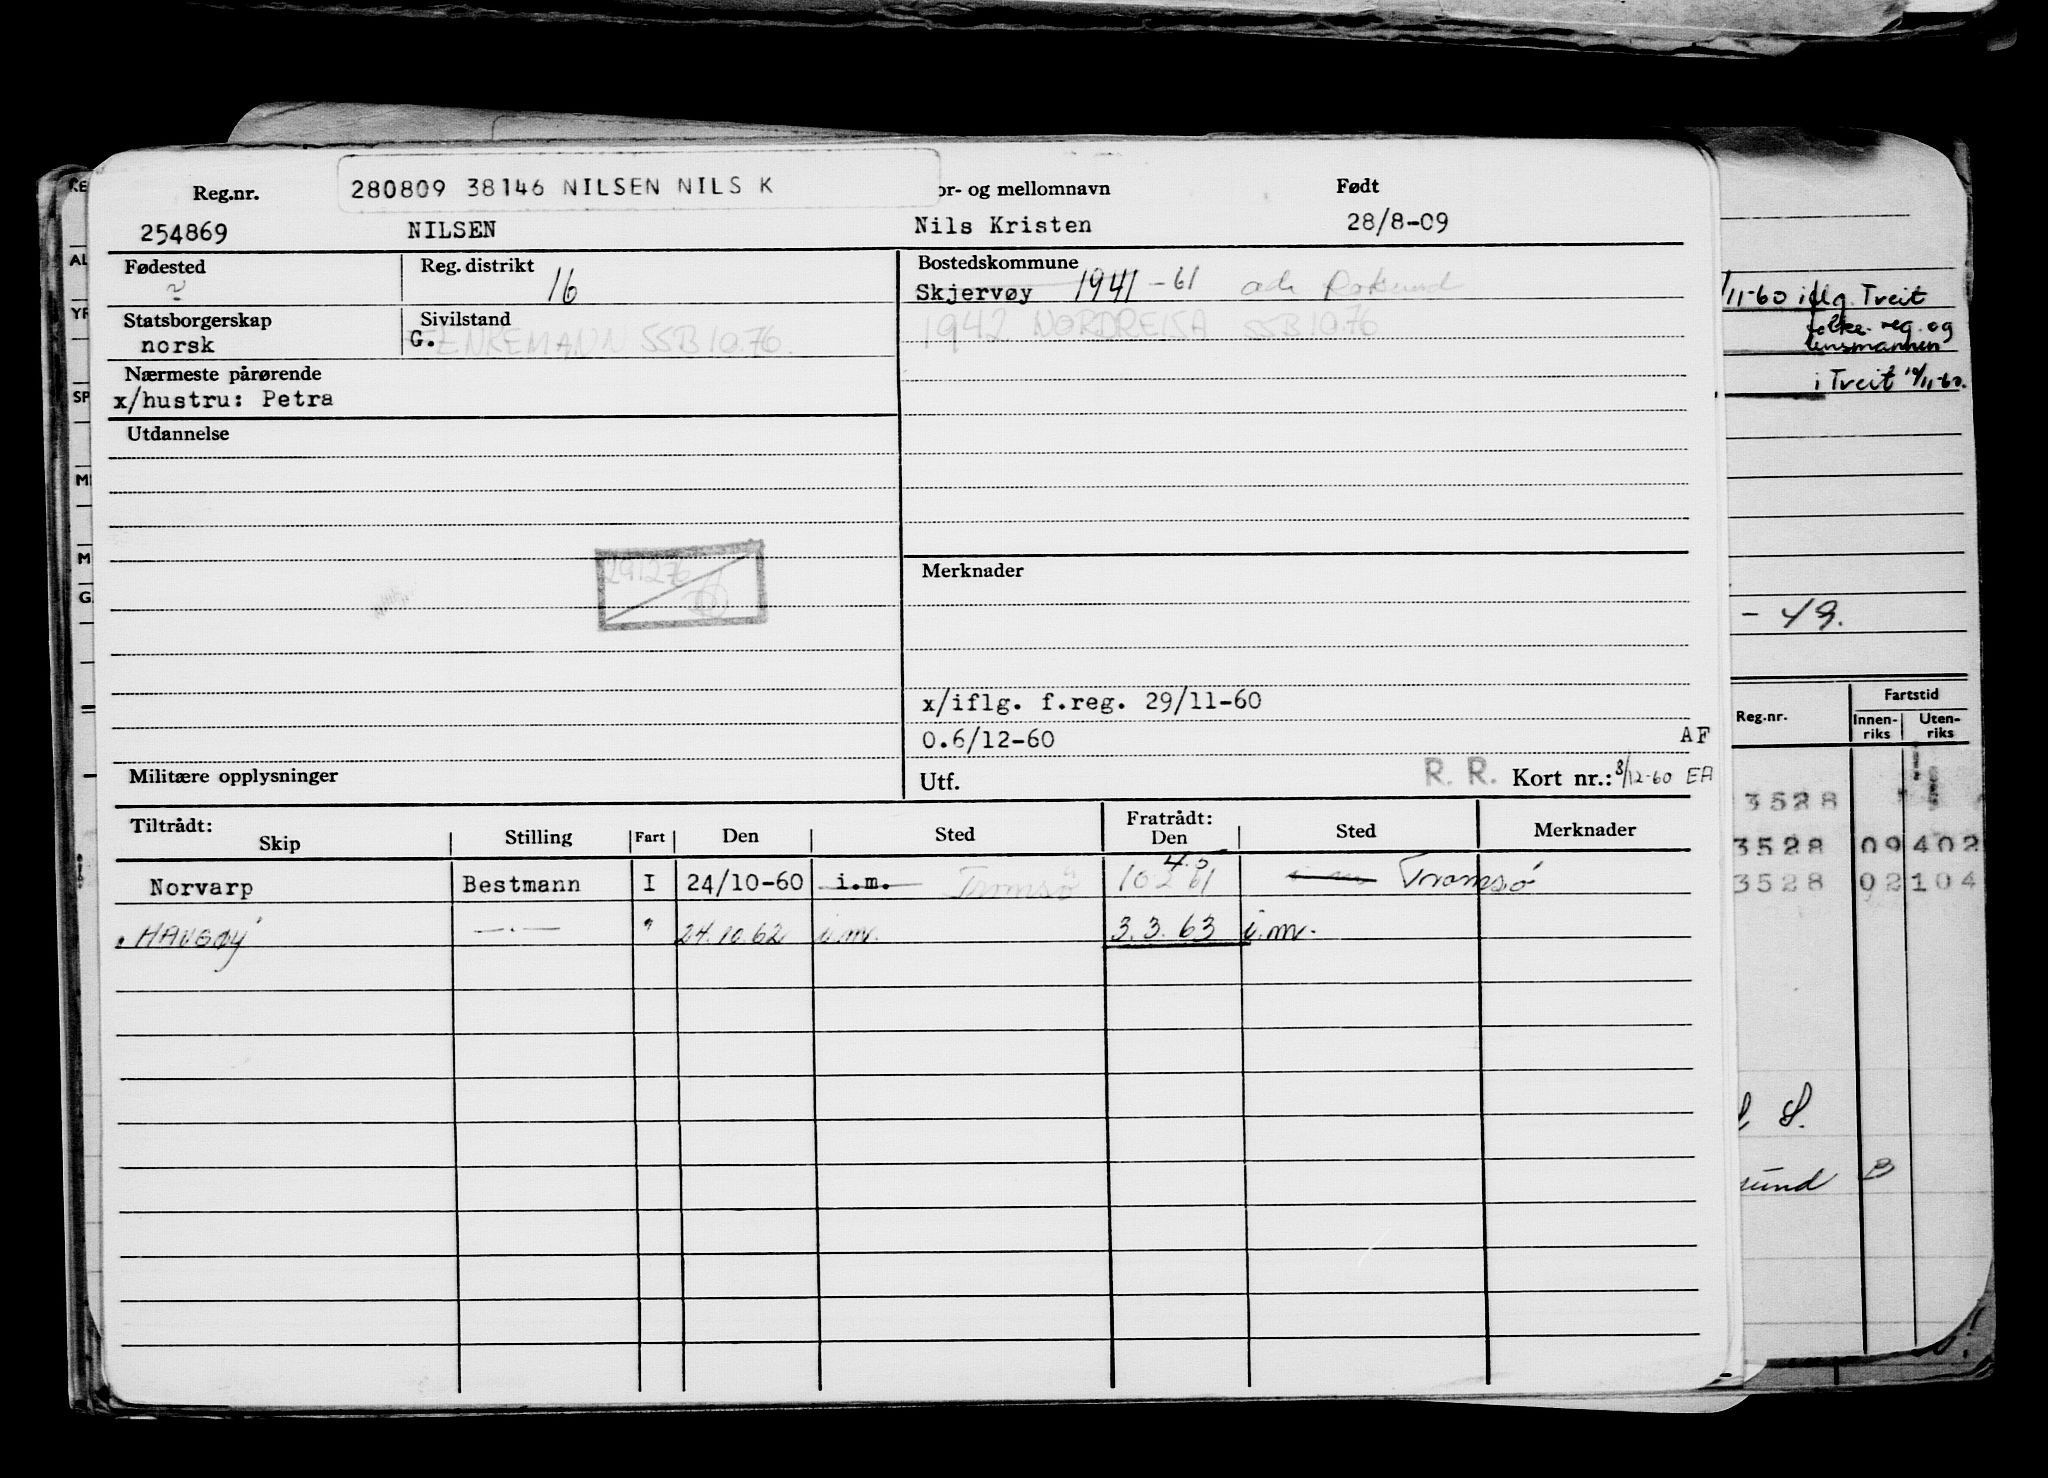 280809 38146 NILSEN NILS K
Reg.nr. or- og mellomnavn Født
254869 NILSEN Nils Kristen 28/8-09
Fødested Reg. distrikt 16
Bostedskommune
Skjervøy 1941 -61
Statsborgerskap Sivilstand
norsk G. ENKEMANN SSB 10.76.
1942 NORDREISA SSB 10.76
Nærmeste pårørende
x/hustru: Petra
Utdannelse
291276
Merknader
x/iflg. f.reg. 29/11-60
0.6/12-60 AF
Militære opplysninger Utf. R. R. Kort nr.: 8/12-60 EA
Tiltrådt: Fratrådt:
Skip Stilling Fart Den Sted Den Sted Merknader
Norvarp Bestmann I 24/10-60 i.m. Tromsø 10 2 61 Tromsø
HAUGØY —.— " 24.10.62 i.m. 3.3.63 i.m.
/11-60 iflg. Treit
folke.reg. og
lensmannen
i Treit 19/11-60.
- 49.
Fartstid
Reg.nr. Innen- Uten-
riks riks
3528
3528 09 402
3528 02 104
S.
sund B
AL
YR
SP
M
M
G